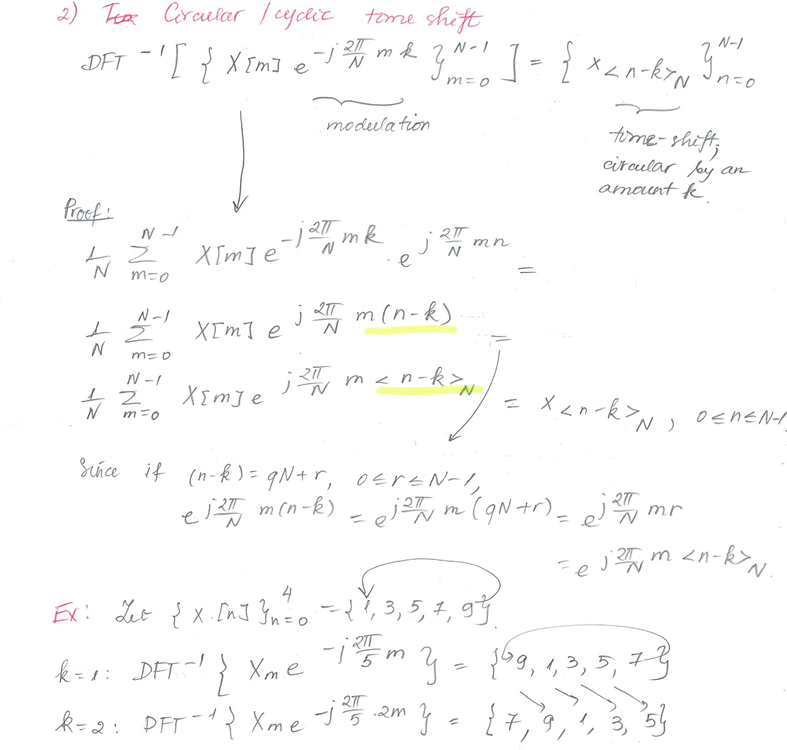 2) Circular / cyclic time shift
DFT⁻¹[ { X[m] e^{-j 2π/N m k} }_{m=0}^{N-1} ] = { x<n-k>_N }_{n=0}^{N-1}
modulation
time-shift,
circular by an
amount k.
Proof:
1/N Σ_{m=0}^{N-1} X[m] e^{-j 2π/N mk} . e^{j 2π/N mn} =
1/N Σ_{m=0}^{N-1} X[m] e^{j 2π/N m(n-k)} =
1/N Σ_{m=0}^{N-1} X[m] e^{j 2π/N m <n-k>_N} = x<n-k>_N , 0≤n≤N-1
Since if (n-k) = qN+r, 0≤r≤N-1,
e^{j 2π/N m(n-k)} = e^{j 2π/N m (qN+r)} = e^{j 2π/N mr}
= e^{j 2π/N m <n-k>_N}.
Ex: Let { x[n] }_{n=0}^{4} = {1, 3, 5, 7, 9}.
k=1: DFT⁻¹ { X_m e^{-j 2π/5 m} } = {9, 1, 3, 5, 7}
k=2: DFT⁻¹ { X_m e^{-j 2π/5 .2m} } = {7, 9, 1, 3, 5}